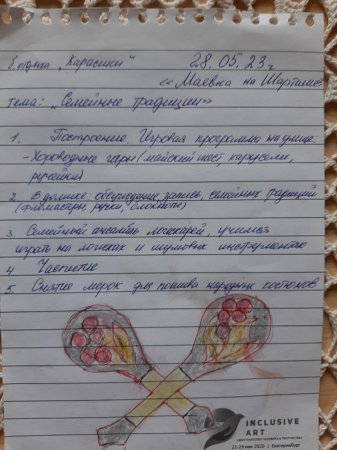 б. отдыха „Карасики"
28.05.23г.
«Маёвка на Шарташе»
тема: „Семейные традиции»
1. Построение. Игровая программа на улице:
- Хороводные игры (майский шест, карусели,
ручейки)
2. В домике: обсуждение, запись, семейных традиций
(фломастеры, ручки, блокноты)
3. Семейный ансамбль ложкарей, учимся
играть на ложках и шумовых инструментах
4 Чаепитие
5. Снятие мерок для пошива народных костюмов
INCLUSIVE
ART
21-29 мая 2020 | Екатеринбург